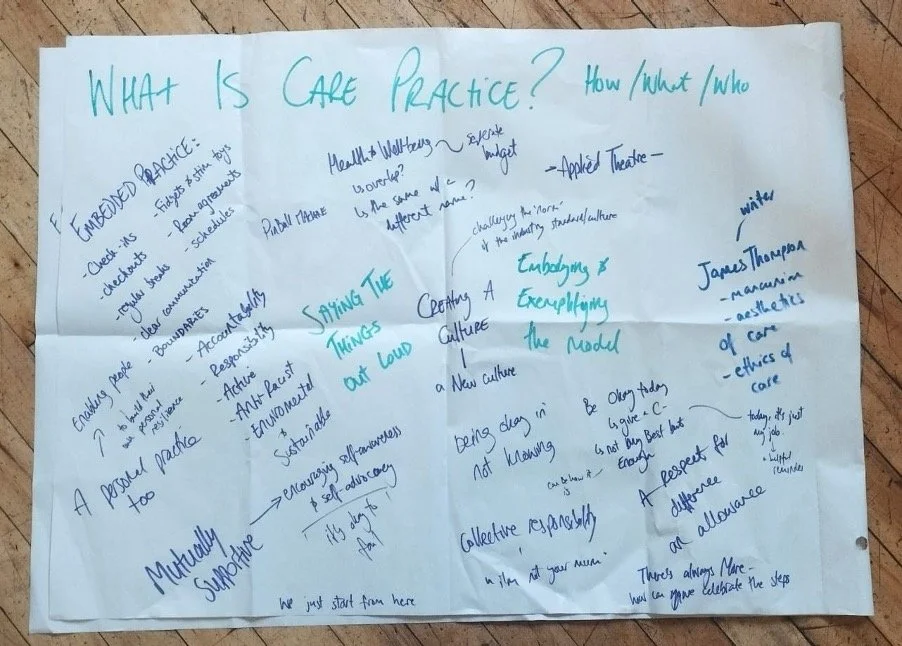 WHAT IS CARE PRACTICE? How/What/Who
EMBEDDED PRACTICE:
- Check-ins
- checkouts
- regular breaks
- clear communication
- BOUNDARIES
- Fidgets & stim toys
- Room agreements
- schedules
Health & Wellbeing ~ seperate budget
Is overlap?
Is the same w/ a
different name?
PinBall Machine
- Applied Theatre -
challenging the "norm"
of the industry standard/culture
CREATING A
CULTURE
/
a New culture
SAYING THE
THINGS
OUT LOUD
Embodying &
Exemplifying
the Model
writer
James Thompson
- mancunian
- aesthetics
of care
- ethics of
care
- Accountability
- Responsibility
- Active
- Anti-Racist
- Enviromental
&
Sustainable
Enabling people
to build their
own personal
resilience
A personal practice
too
Mutually
Supportive
encouraging self-awareness
& self advocacy
it's okay to
fail
being okay in
not knowing
Be Okay today
is give a C-
is not my Best but
Enough
today, it's just
my job
a helpful
reminder
A respect for
difference
an allowance
Collective responsibility
"i'm not your mum"
There's always More -
how can we celebrate the steps
We just start from here